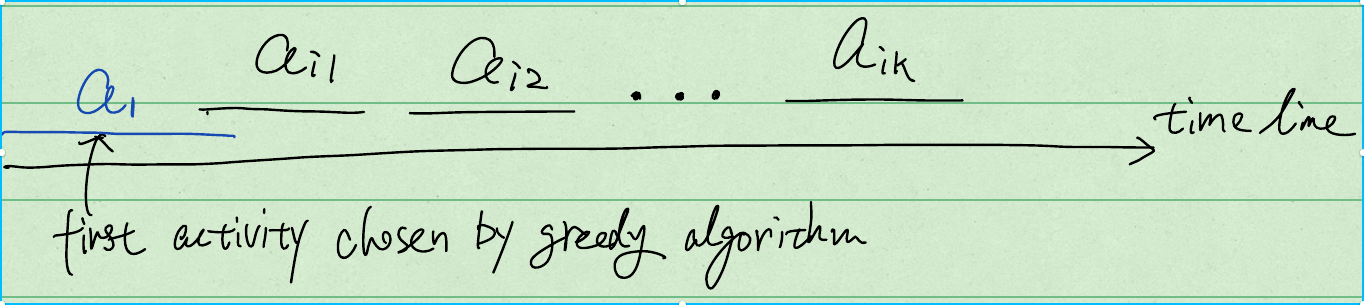 a₁ aᵢ₁ aᵢ₂ ... aᵢₖ
time line
first activity chosen by greedy algorithm